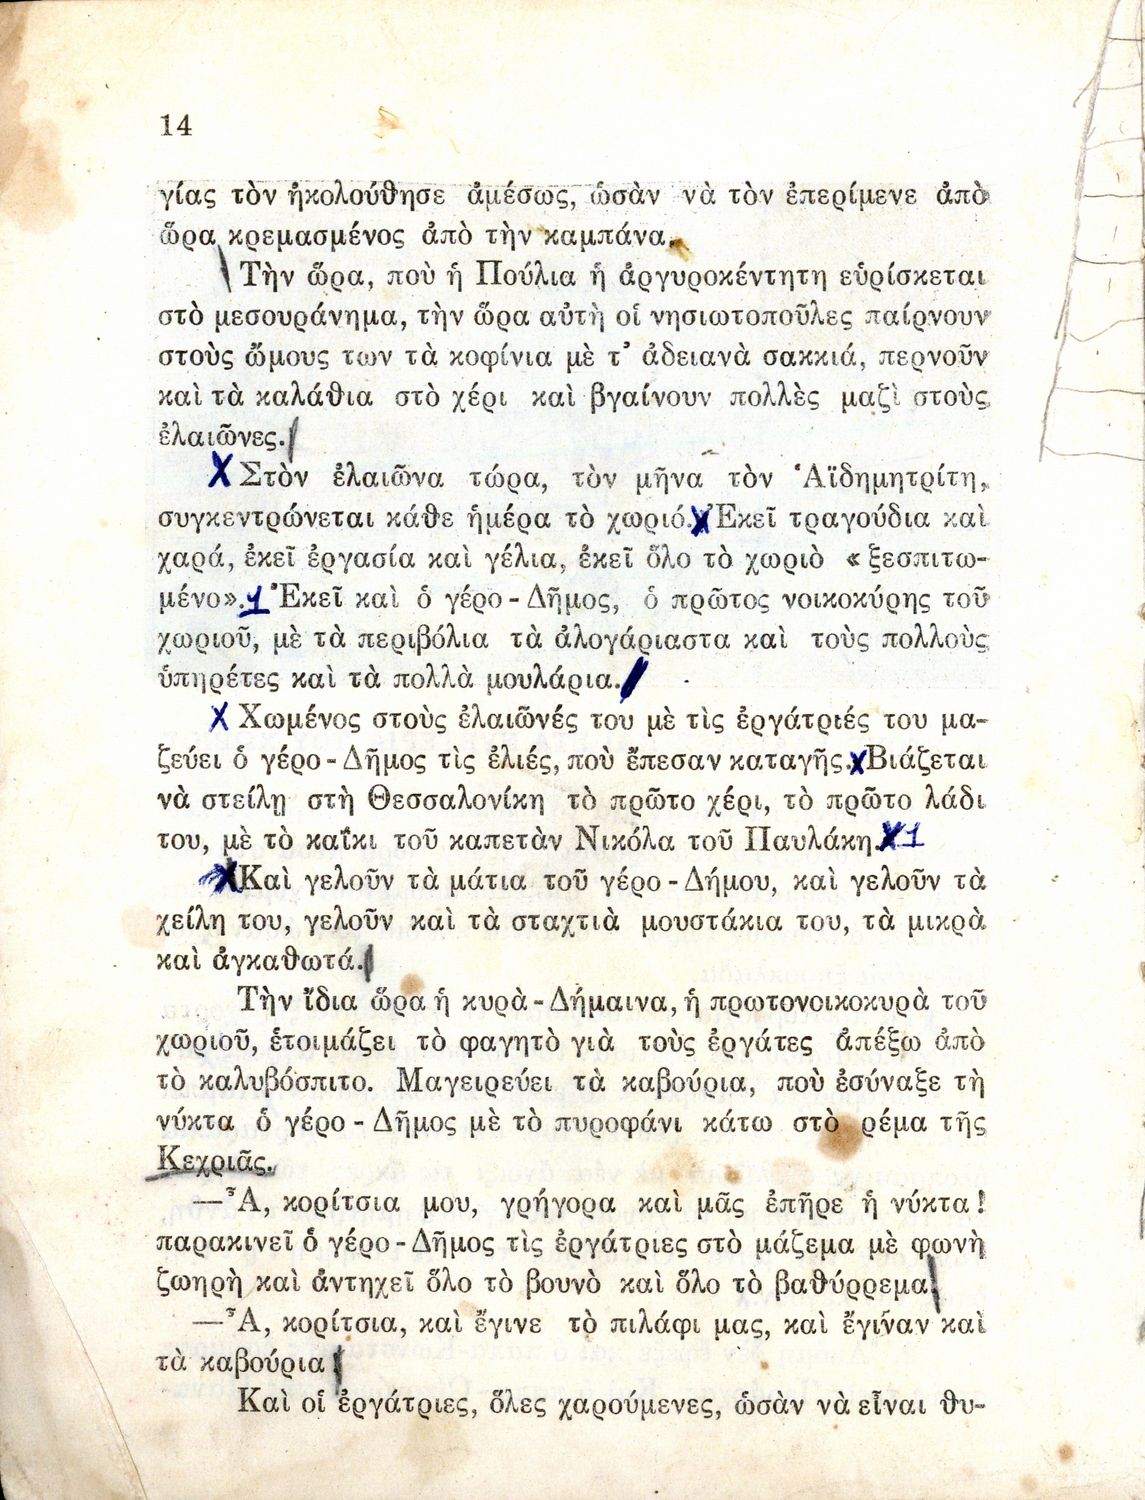 14
γίας τὸν ἠκολούθησε ἀμέσως, ὡσὰν νὰ τὸν ἐπερίμενε ἀπὸ
ὥρα κρεμασμένος ἀπὸ τὴν καμπάνα.
Τὴν ὥρα, ποὺ ἡ Πούλια ἡ ἀργυροκέντητη εὑρίσκεται
στὸ μεσουράνημα, τὴν ὥρα αὐτὴ οἱ νησιωτοποῦλες παίρνουν
στοὺς ὤμους των τὰ κοφίνια μὲ τ’ ἀδειανὰ σακκιά, περνοῦν
καὶ τὰ καλάθια στὸ χέρι καὶ βγαίνουν πολλὲς μαζὶ στοὺς
ἐλαιῶνες.
X Στὸν ἐλαιῶνα τώρα, τὸν μῆνα τὸν Ἁϊδημητρίτη,
συγκεντρώνεται κάθε ἡμέρα τὸ χωριό. X Ἐκεῖ τραγούδια καὶ
χαρά, ἐκεῖ ἐργασία καὶ γέλια, ἐκεῖ ὅλο τὸ χωριὸ « ξεσπιτω-
μένο». 1 Ἐκεῖ καὶ ὁ γέρο - Δῆμος, ὁ πρῶτος νοικοκύρης τοῦ
χωριοῦ, μὲ τὰ περιβόλια τὰ ἀλογάριαστα καὶ τοὺς πολλοὺς
ὑπηρέτες καὶ τὰ πολλὰ μουλάρια.
X Χωμένος στοὺς ἐλαιῶνές του μὲ τὶς ἐργάτριές του μα-
ζεύει ὁ γέρο - Δῆμος τὶς ἐλιές, ποὺ ἔπεσαν καταγῆς. X Βιάζεται
νὰ στείλῃ στὴ Θεσσαλονίκη τὸ πρῶτο χέρι, τὸ πρῶτο λάδι
του, μὲ τὸ καΐκι τοῦ καπετὰν Νικόλα τοῦ Παυλάκη. X 1
X Καὶ γελοῦν τὰ μάτια τοῦ γέρο - Δήμου, καὶ γελοῦν τὰ
χείλη του, γελοῦν καὶ τὰ σταχτιὰ μουστάκια του, τὰ μικρὰ
καὶ ἀγκαθωτά.
Τὴν ἴδια ὥρα ἡ κυρὰ - Δήμαινα, ἡ πρωτονοικοκυρὰ τοῦ
χωριοῦ, ἑτοιμάζει τὸ φαγητὸ γιὰ τοὺς ἐργάτες ἀπέξω ἀπὸ
τὸ καλυβόσπιτο. Μαγειρεύει τὰ καβούρια, ποὺ ἐσύναξε τὴ
νύκτα ὁ γέρο - Δῆμος μὲ τὸ πυροφάνι κάτω στὸ ρέμα τῆς
Κεχριᾶς.
—Ἆ, κορίτσια μου, γρήγορα καὶ μᾶς ἐπῆρε ἡ νύκτα!
παρακινεῖ ὁ γέρο - Δῆμος τὶς ἐργάτριες στὸ μάζεμα μὲ φωνὴ
ζωηρὴ καὶ ἀντηχεῖ ὅλο τὸ βουνὸ καὶ ὅλο τὸ βαθύρρεμα.
—Ἆ, κορίτσια, καὶ ἔγινε τὸ πιλάφι μας, καὶ ἔγιναν καὶ
τὰ καβούρια
Καὶ οἱ ἐργάτριες, ὅλες χαρούμενες, ὡσὰν νὰ εἶναι θυ-